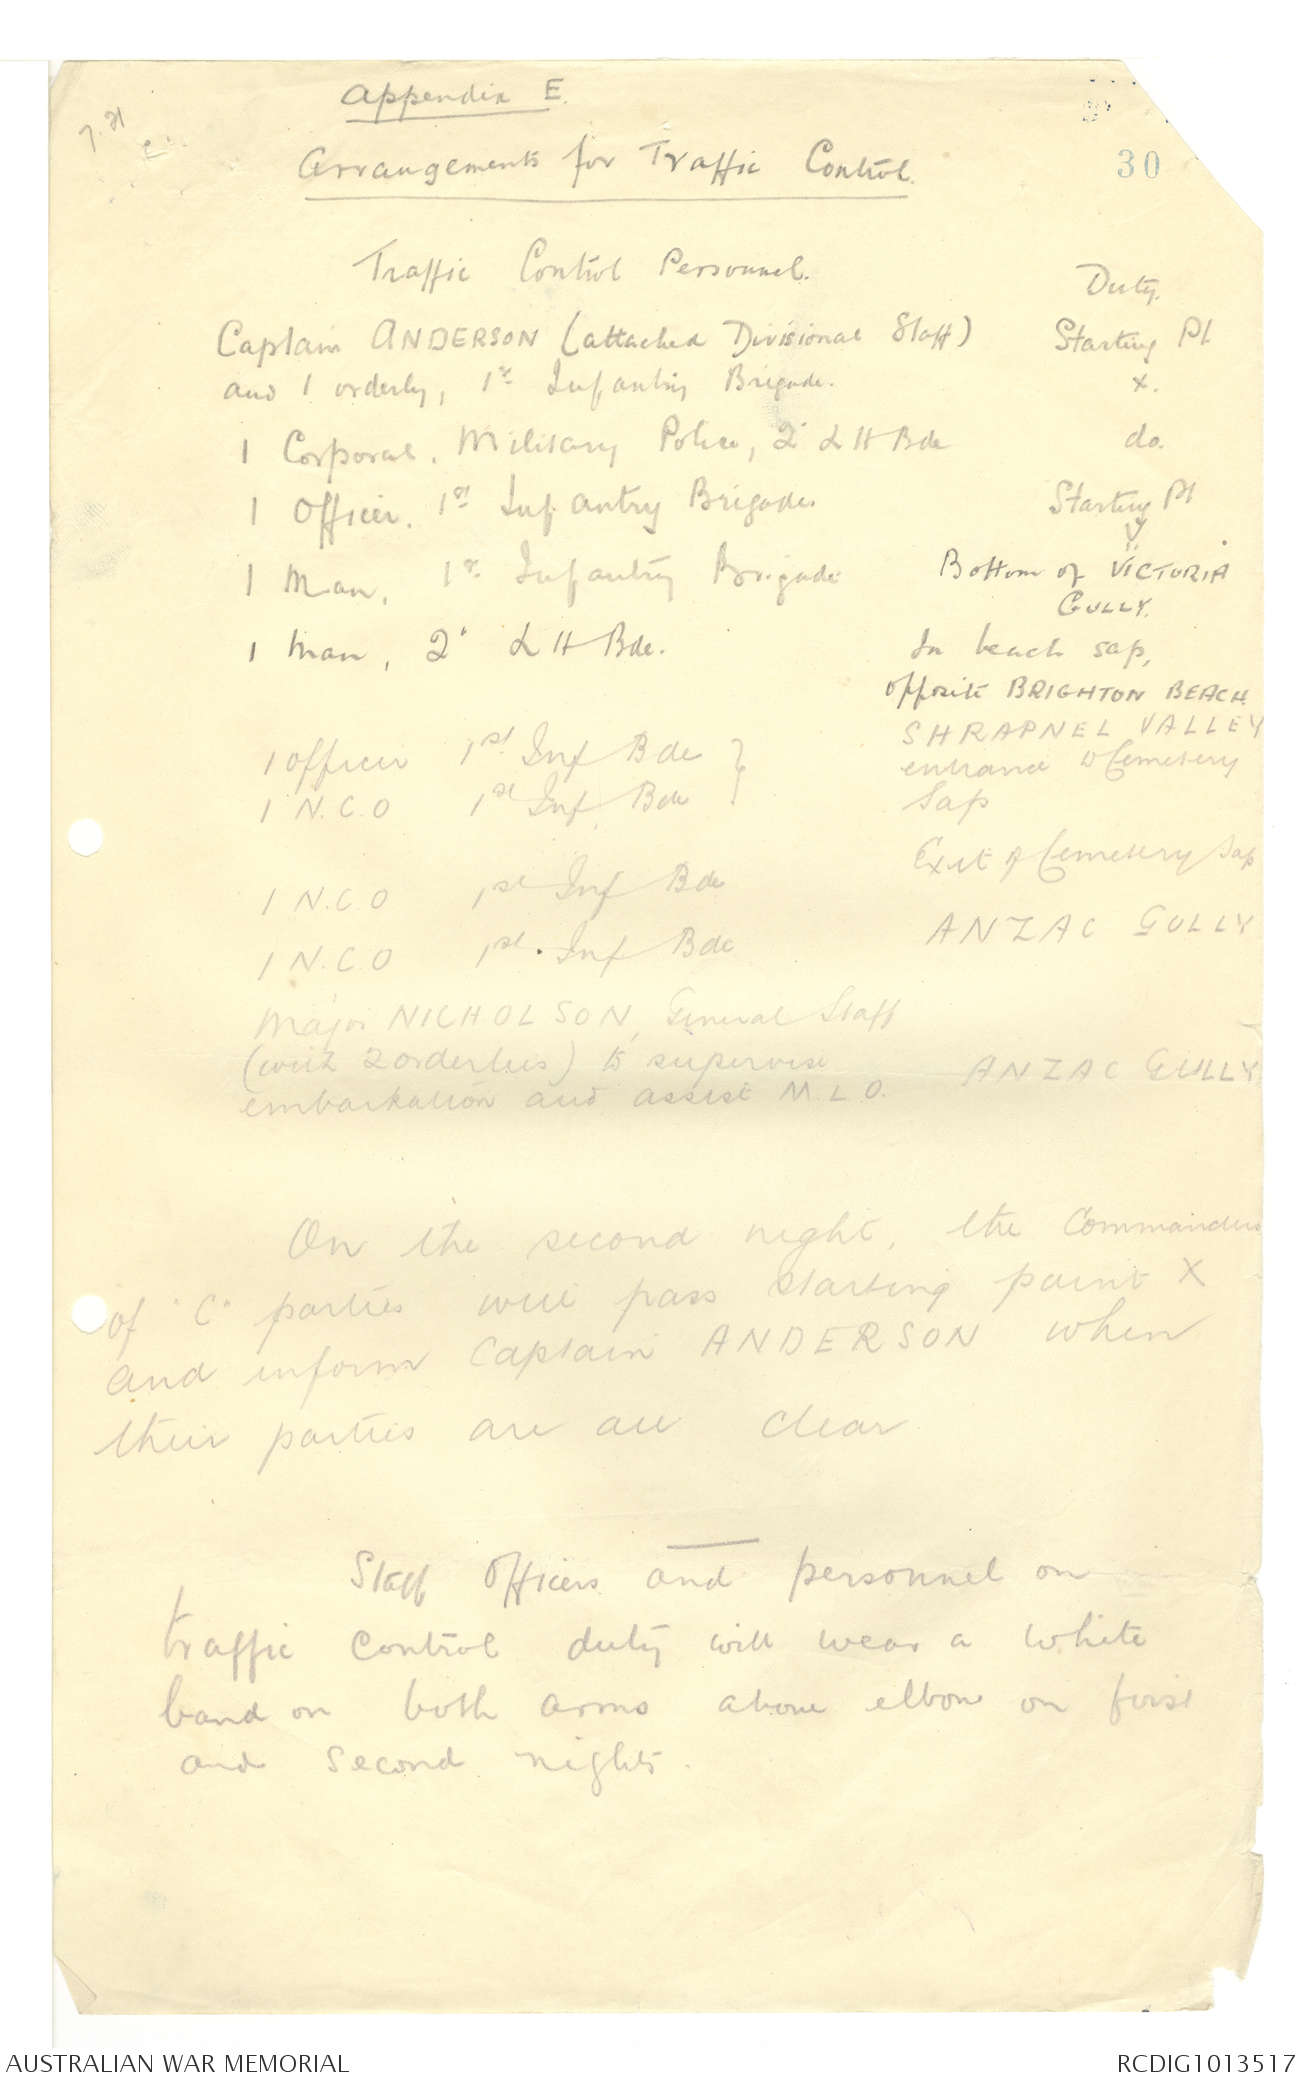 Appendix E.
30
Arrangements for Traffic Control.
Traffic Control Personnel.
Duty.
Captain ANDERSON (attached Divisional Staff) Starting Pt
and 1 orderly, 1st Infantry Brigade. X.
1 Corporal. Military Police, 2d L H Bde do.
1 Officer. 1st Infantry Brigade. Starting Pt
Y
1 Man, 1st Infantry Brigade Bottom of VICTORIA
GULLY.
1 Man, 2d L H Bde. In beach sap,
opposite BRIGHTON BEACH.
1 officer 1st Inf Bde } SHRAPNEL VALLEY
entrance to Cemetery
1 N.C.O 1st Inf Bde Sap
1 N.C.O 1st Inf Bde Exit of Cemetery Sap
1 N.C.O 1st. Inf Bde ANZAC GULLY
Major NICHOLSON, General Staff
(with 2 orderlies) to supervise ANZAC GULLY
embarkation and assist M.L.O.
On the second night, the Commanders
of "C" parties will pass starting point X
and inform Captain ANDERSON when
their parties are all clear
Staff Officers and personnel on
traffic control duty will wear a white
band on both arms above elbow on first
and second nights.
AUSTRALIAN WAR MEMORIAL
RCDIG1013517